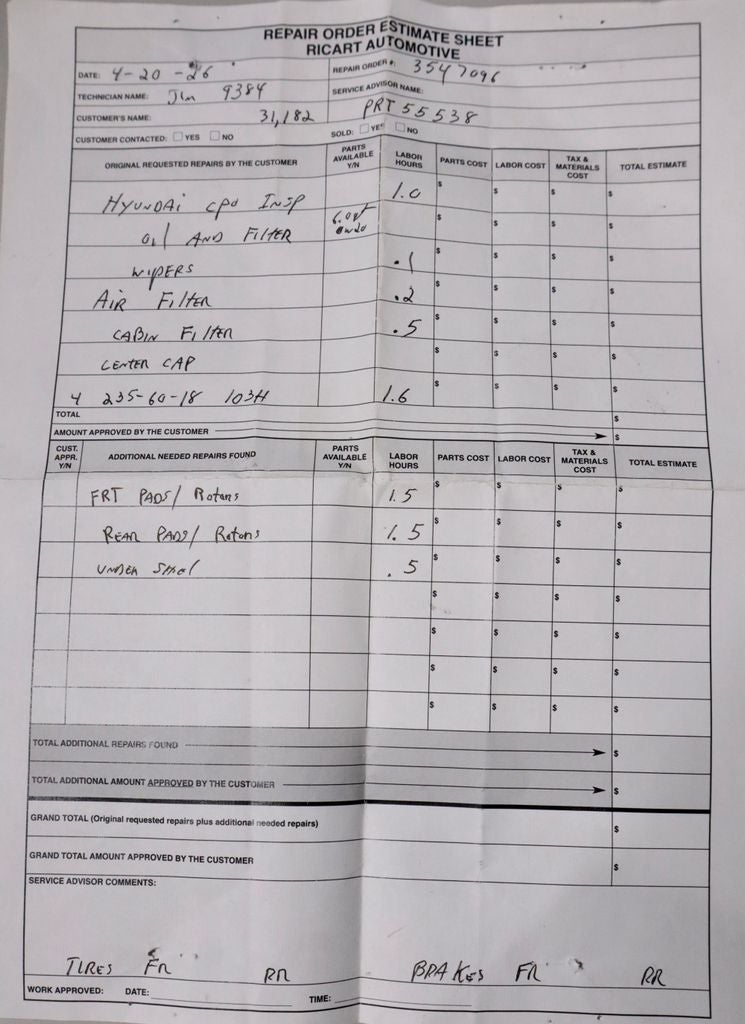 REPAIR ORDER ESTIMATE SHEET
RICART AUTOMOTIVE
DATE: 4-20-26 REPAIR ORDER #: 3547096
TECHNICIAN NAME: Jim 9384 SERVICE ADVISOR NAME:
CUSTOMER'S NAME: 31,182 PRT 55538
CUSTOMER CONTACTED: YES NO SOLD: YES NO
ORIGINAL REQUESTED REPAIRS BY THE CUSTOMER PARTS AVAILABLE Y/N LABOR HOURS PARTS COST LABOR COST TAX & MATERIALS COST TOTAL ESTIMATE
HYUNDAI CPO INSP 1.0 $ $ $ $
OIL AND FILTER 6.0qt 0w20 $ $ $ $
WIPERS .1 $ $ $ $
AIR FILTER .2 $ $ $ $
CABIN FILTER .5 $ $ $ $
CENTER CAP $ $ $ $
4 235-60-18 103H 1.6 $ $ $ $
TOTAL $
AMOUNT APPROVED BY THE CUSTOMER $
CUST. APPR. Y/N ADDITIONAL NEEDED REPAIRS FOUND PARTS AVAILABLE Y/N LABOR HOURS PARTS COST LABOR COST TAX & MATERIALS COST TOTAL ESTIMATE
FRT PADS/ Rotors 1.5 $ $ $ $
REAR PADS/ Rotors 1.5 $ $ $ $
UNDER .5 $ $ $ $
$ $ $ $
$ $ $ $
$ $ $ $
$ $ $ $
TOTAL ADDITIONAL REPAIRS FOUND $
TOTAL ADDITIONAL AMOUNT APPROVED BY THE CUSTOMER $
GRAND TOTAL (Original requested repairs plus additional needed repairs) $
GRAND TOTAL AMOUNT APPROVED BY THE CUSTOMER $
SERVICE ADVISOR COMMENTS:
TIRES FR RR BRAKES FR RR
WORK APPROVED: DATE: TIME: